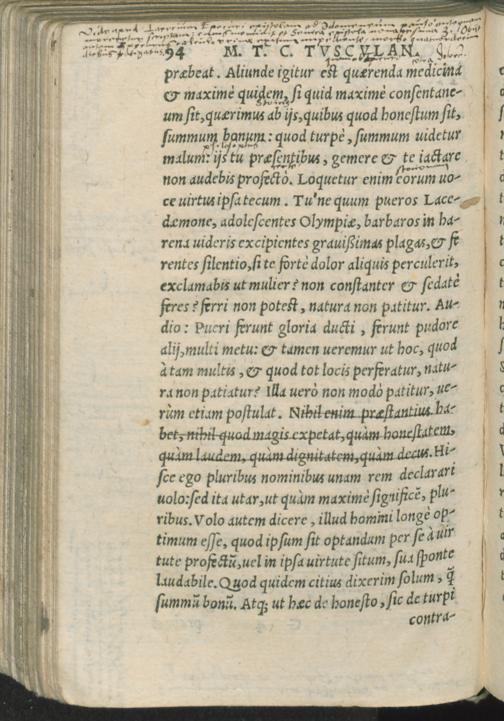 94 M. T. C. TVSCVLAN.
præbeat. Aliunde igitur est quærenda medicina
& maximè quidem, si quid maximè consentane-
um sit, quærimus ab ijs, quibus quod honestum sit,
summum bonum: quod turpè, summum uidetur
malum: ijs tu præsentibus, gemere & te iactare
non audebis profectò. Loquetur enim eorum uo-
ce uirtus ipsa tecum. Tu'ne quum pueros Lace-
dæmone, adolescentes Olympiæ, barbaros in ha-
rena uideris excipientes grauißimas plagas, & fe
rentes silentio, si te fortè dolor aliquis perculerit,
exclamabis ut mulier? non constanter & sedatè
feres? ferri non potest, natura non patitur. Au-
dio: Pueri ferunt gloria ducti, ferunt pudore
alij, multi metu: & tamen ueremur ut hoc, quod
à tam multis, & quod tot locis perferatur, natu-
ra non patiatur? Illa uerò non modò patitur, ue-
rùm etiam postulat. Nihil enim præstantius ha-
bet, nihil quod magis expetat, quàm honestatem,
quàm laudem, quàm dignitatem, quàm decus. Hi-
sce ego pluribus nominibus unam rem declarari
uolo: sed ita utar, ut quàm maximè significē, plu-
ribus. Volo autem dicere, illud homini longè op-
timum esse, quod ipsum sit optandum per se à uir
tute profectū, uel in ipsa uirtute situm, sua sponte
laudabile. Quod quidem citius dixerim solum, q̃
summū bonū. Atq; ut hæc de honesto, sic de turpi
contra-